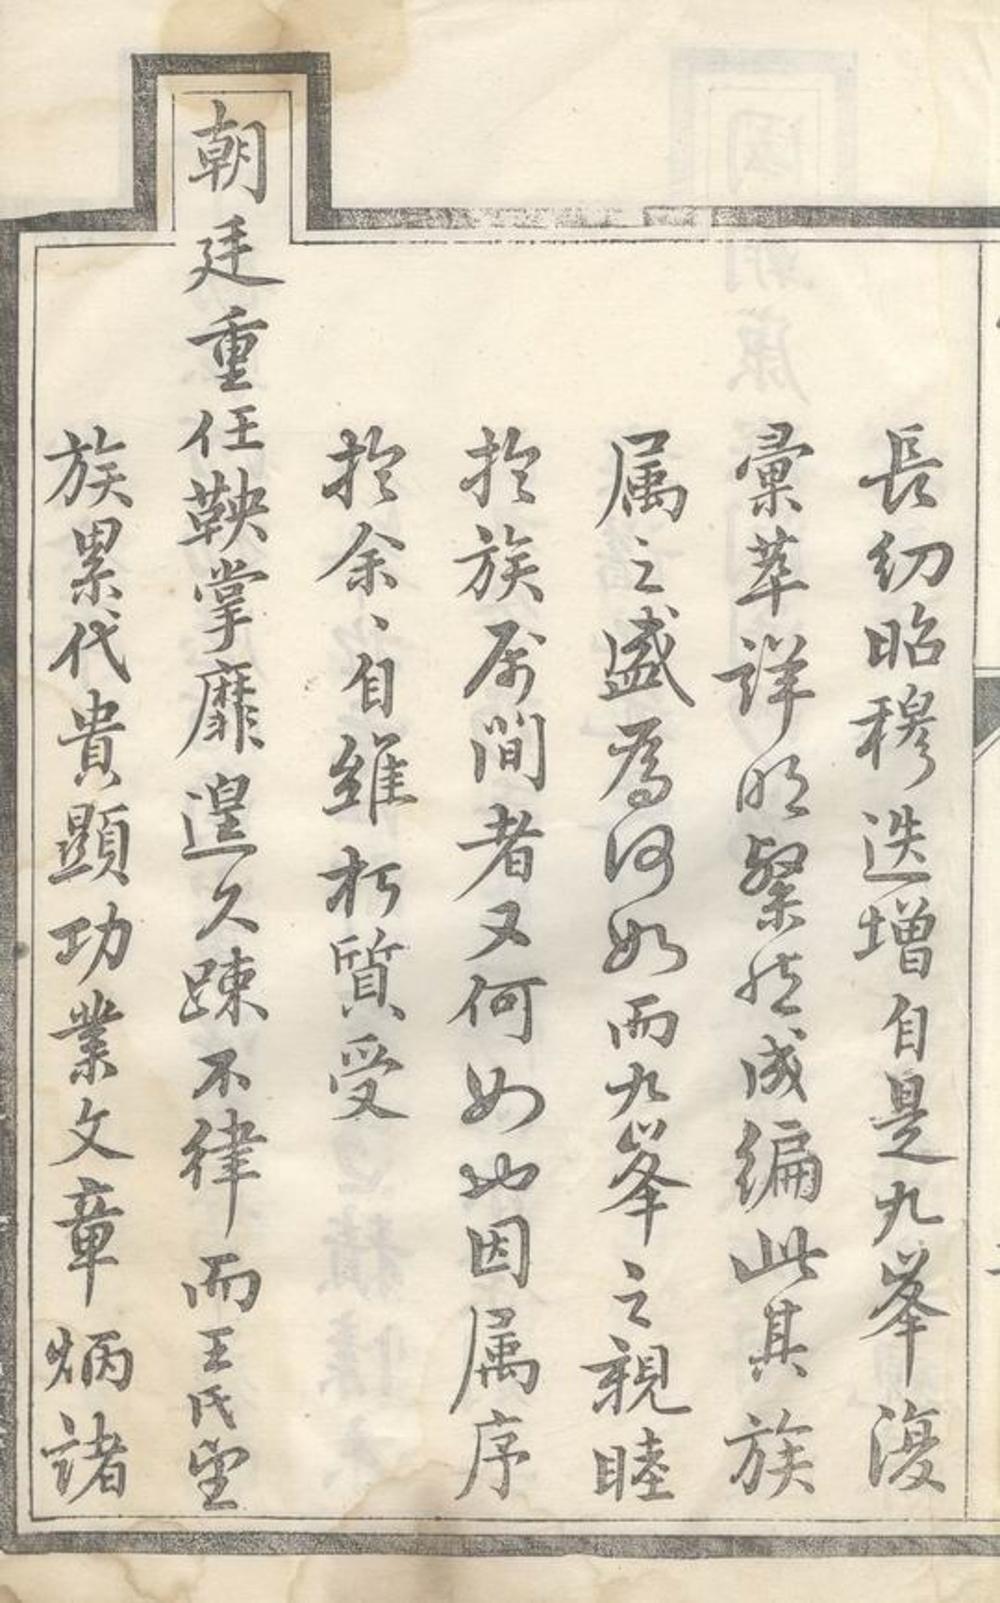 長幼昭穆迭增自是九峯復
彙萃詳明粲然成編此其族
属之盛為何如而九峯之親睦
扵族属間者又何如也因属序
扵余〻自維朽質受
朝廷重任鞅掌靡遑久踈不律而王氏望
族累代貴顕功業文章炳諸